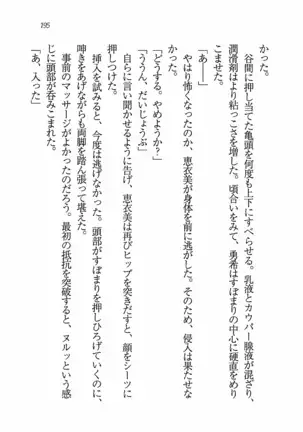 195
谷間に押し当てた亀頭を何度も上下にすべらせる。乳液とカウパー腺液が混ざり、
潤滑剤はより粘っこさを増した。頃合いをみて、勇希はすぼまりの中心に硬直をめり
こませた。
「あ――」
やはり怖くなったのか、恵衣美が身体を前に逃がした。そのため、侵入は果たせな
かった。
「どうする。やめようか?」
「ううん、だいじょうぶ」
自らに言い聞かせるように告げ、恵衣美は再びヒップを突きだすと、顔をシーツに
押しつけた。
挿入を試みると、今度は逃げなかった。頭部がすぼまりを押しひろげていくのに、
呻きをあげながらも両脚を踏ん張って堪えた。
事前のマッサージがよかったのだろう。最初の抵抗を突破すると、ヌルッという感
じに頭部が呑みこまれた。
「あ、入った」